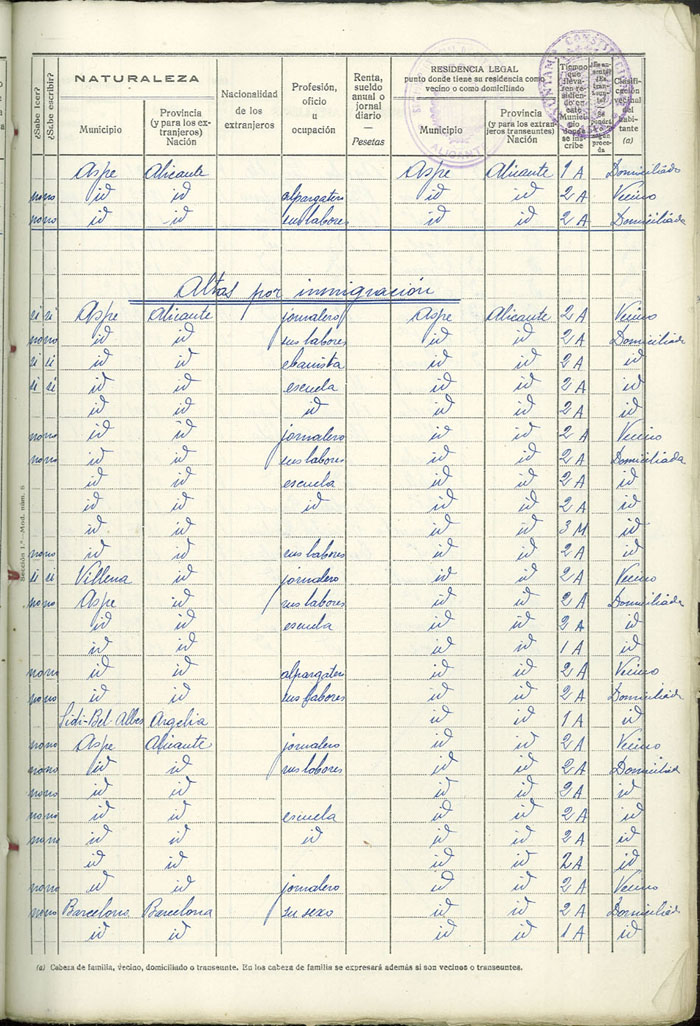 ¿Sabe leer?
¿Sabe escribir?
NATURALEZA
Municipio
Provincia (y para los extranjeros) Nación
Nacionalidad de los extranjeros
Profesión, oficio u ocupación
Renta, sueldo anual o jornal diario — Pesetas
RESIDENCIA LEGAL
punto donde tiene su residencia como vecino o como domiciliado
Municipio
Provincia (y para los extranjeros transeuntes) Nación
Tiempo que lleva
Clasificación vecinal del habitante (a)
ALICANTE
Aspe Alicante Aspe Alicante 1 A Domiciliado
no no id id alpargatero id id 2 A Vecino
no no id id sus labores id id 2 A Domiciliada
Altas por inmigración
si si Aspe Alicante jornalero Aspe Alicante 2 A Vecino
no no id id sus labores id id 2 A Domiciliada
si si id id ebanista id id 2 A id
si si id id escuela id id 2 A id
id id id id id 2 A id
no no id id jornalero id id 2 A Vecino
no no id id sus labores id id 2 A Domiciliada
id id escuela id id 2 A id
id id id id id 2 A id
id id id id 3 M id
no no id id sus labores id id 2 A id
si si Villena id jornalero id id 2 A Vecino
no no Aspe id sus labores id id 2 A Domiciliada
id id escuela id id 2 A id
id id id id 1 A id
no no id id alpargatero id id 2 A Vecino
no no id id sus labores id id 2 A Domiciliada
Sidi-Bel-Abbes Argelia id id 1 A id
no no Aspe Alicante jornalero id id 2 A Vecino
no no id id sus labores id id 2 A Domiciliada
no no id id id id 2 A id
no no id id escuela id id 2 A id
no no id id id id id 2 A id
id id id id 2 A id
no no id id jornalero id id 2 A Vecino
no no Barcelona Barcelona su sexo id id 2 A Domiciliada
id id id id 1 A id
Sección 1.ª—Mod. núm. 6
(a) Cabeza de familia, vecino, domiciliado o transeunte. En los cabeza de familia se expresará además si son vecinos o transeuntes.